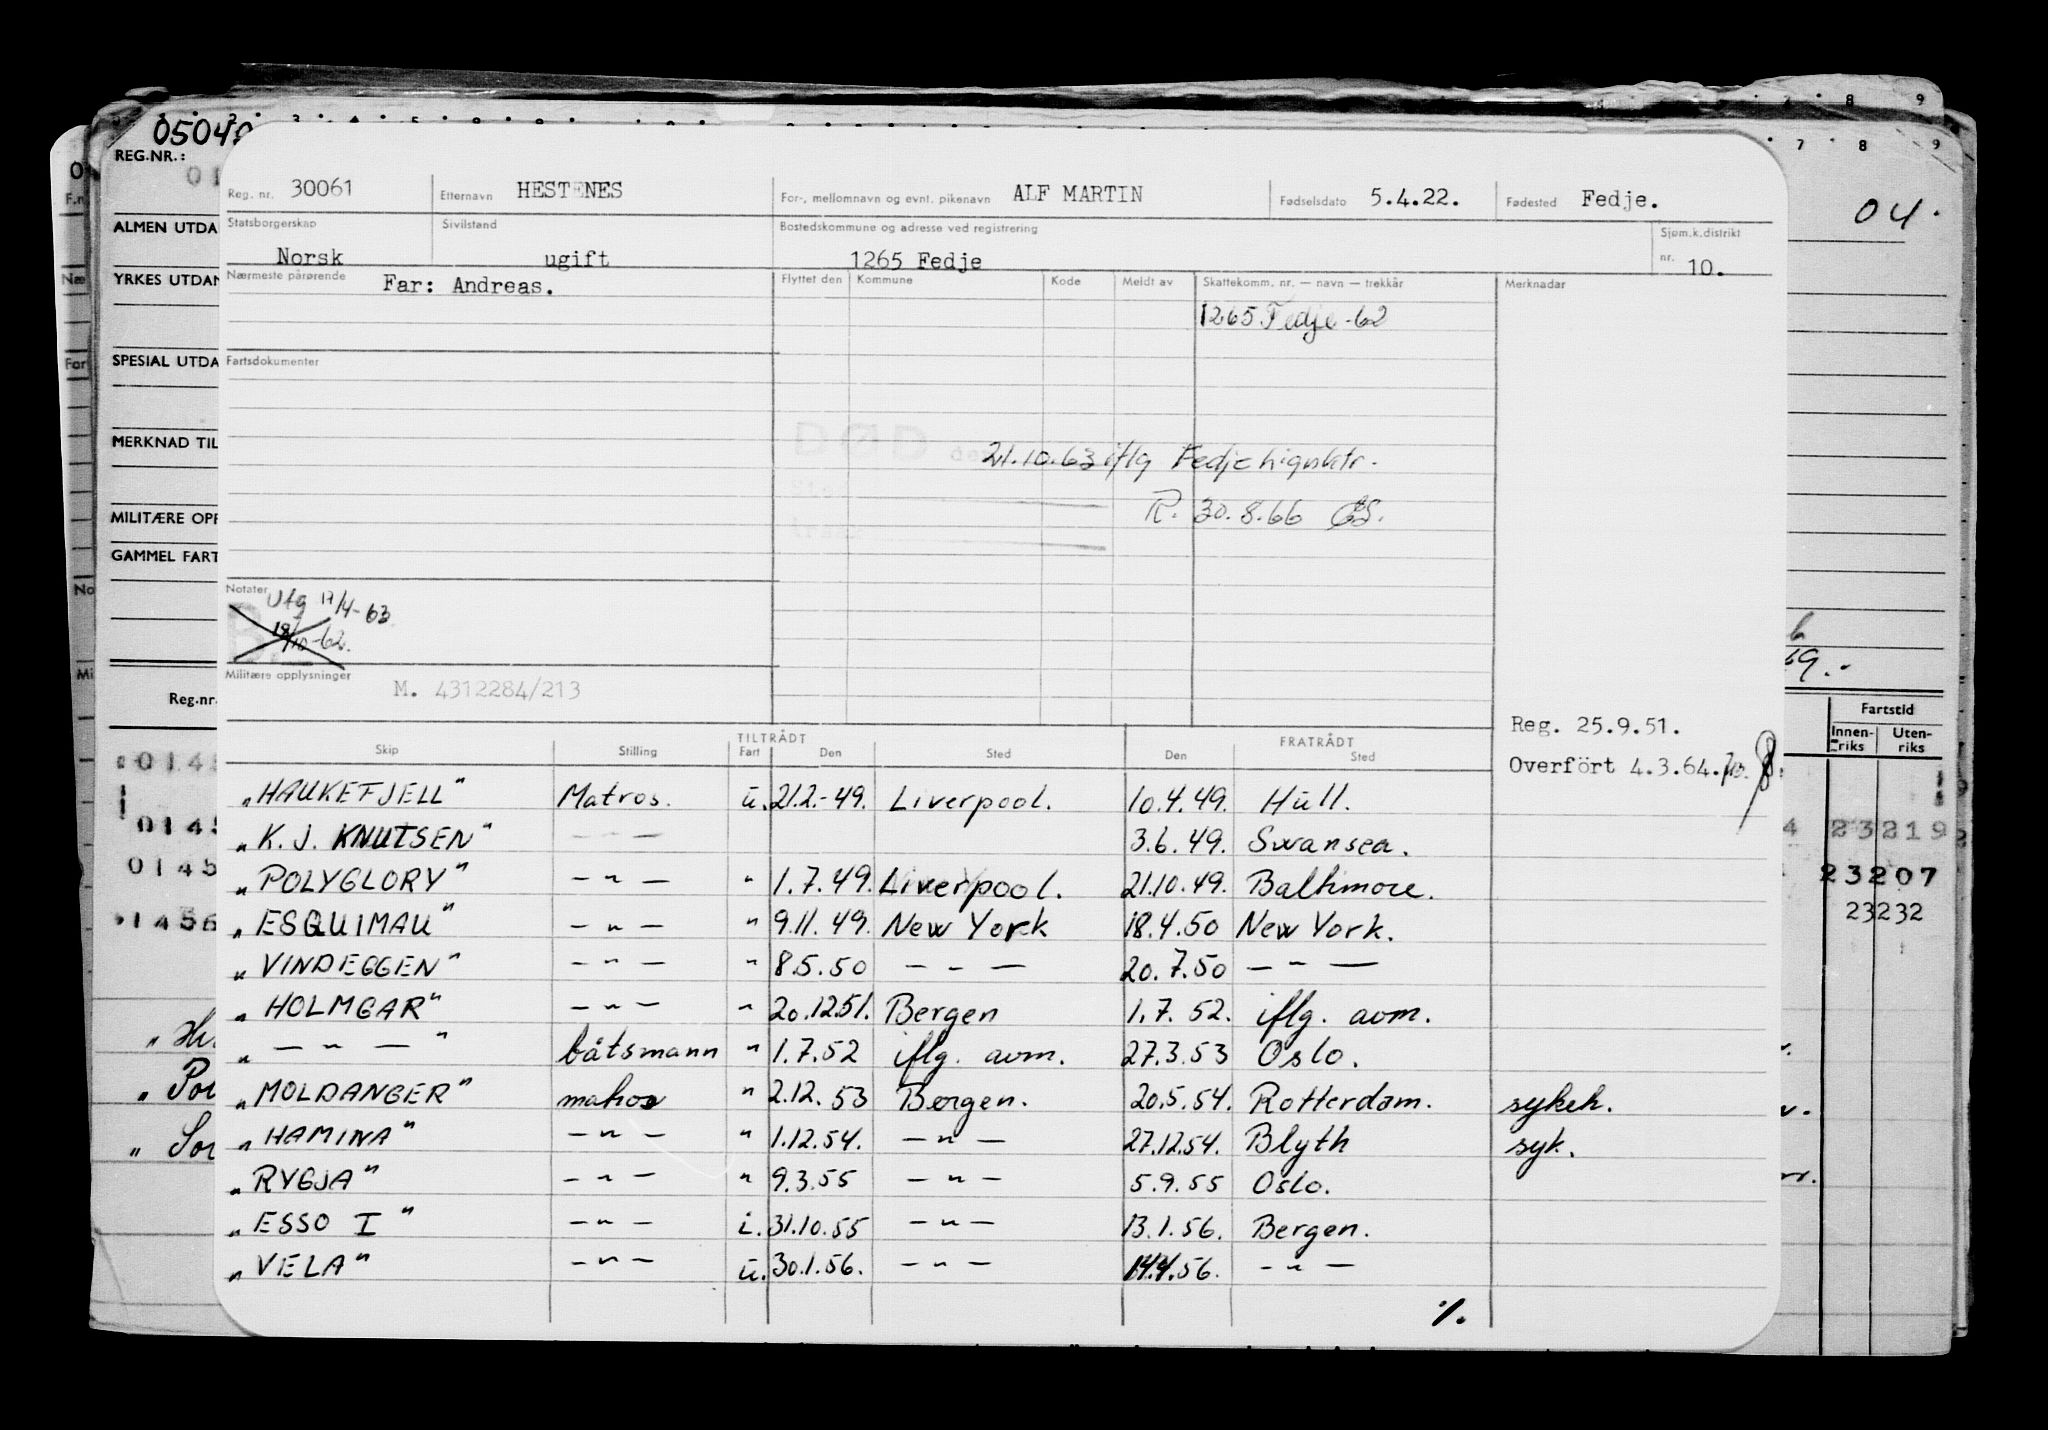 05049
REG.NR.:
ALMEN UTDA
YRKES UTDAN
SPESIAL UTDA
MERKNAD TIL
MILITÆRE OPP
GAMMEL FART
Reg.nr.
Reg. nr. 30061 Etternavn HESTENES For-, mellomnavn og evnt. pikenavn ALF MARTIN Fødselsdato 5.4.22. Fødested Fedje.
04.
Statsborgerskap Sivilstand Bostedskommune og adresse ved registrering Sjøm.k.distrikt
Norsk ugift 1265 Fedje nr. 10.
Nærmeste pårørende Far: Andreas. Flyttet den Kommune Kode Meldt av Skattekomm. nr. — navn — trekkår Merknadar
1265 Fedje -62
Fartsdokumenter
DØD den 21.10.63 iflg Fedje lignktr.
R. 30.8.66
Notater Utg 17/4-63
B. 18/10-62.
Militære opplysninger M. 4312284/213
Reg. 25.9.51.
Overført 4.3.64.
Fartstid
Innen-riks Uten-riks
TILTRÅDT FRATRÅDT
Skip Stilling Fart Den Sted Den Sted
„HAUKEFJELL" Matros. u. 21.2.-49. Liverpool. 10.4.49. Hull.
„K. J. KNUTSEN" — " — 3.6.49. Swansea.
„POLYGLORY" — " — " 1.7.49. Liverpool. 21.10.49. Baltimore.
„ESQUIMAU" — " — " 9.11.49. New York 18.4.50 New York.
„VINDEGGEN" — " — " 8.5.50 — " — 20.7.50 — " —
„HOLMGAR" — " — " 20.12.51. Bergen 1.7.52. iflg. avm.
„ — " — " båtsmann " 1.7.52 iflg. avm. 27.3.53 Oslo.
„MOLDANGER" matros " 2.12.53 Bergen. 20.5.54. Rotterdam. sykeh.
„HAMINA" — " — " 1.12.54. — " — 27.12.54. Blyth syk.
„RYGJA" — " — " 9.3.55 — " — 5.9.55 Oslo.
„ESSO I" — " — i. 31.10.55 — " — 13.1.56. Bergen.
„VELA" — " — u. 30.1.56. — " — 14.4.56. — " —
./.
23219
23207
23232